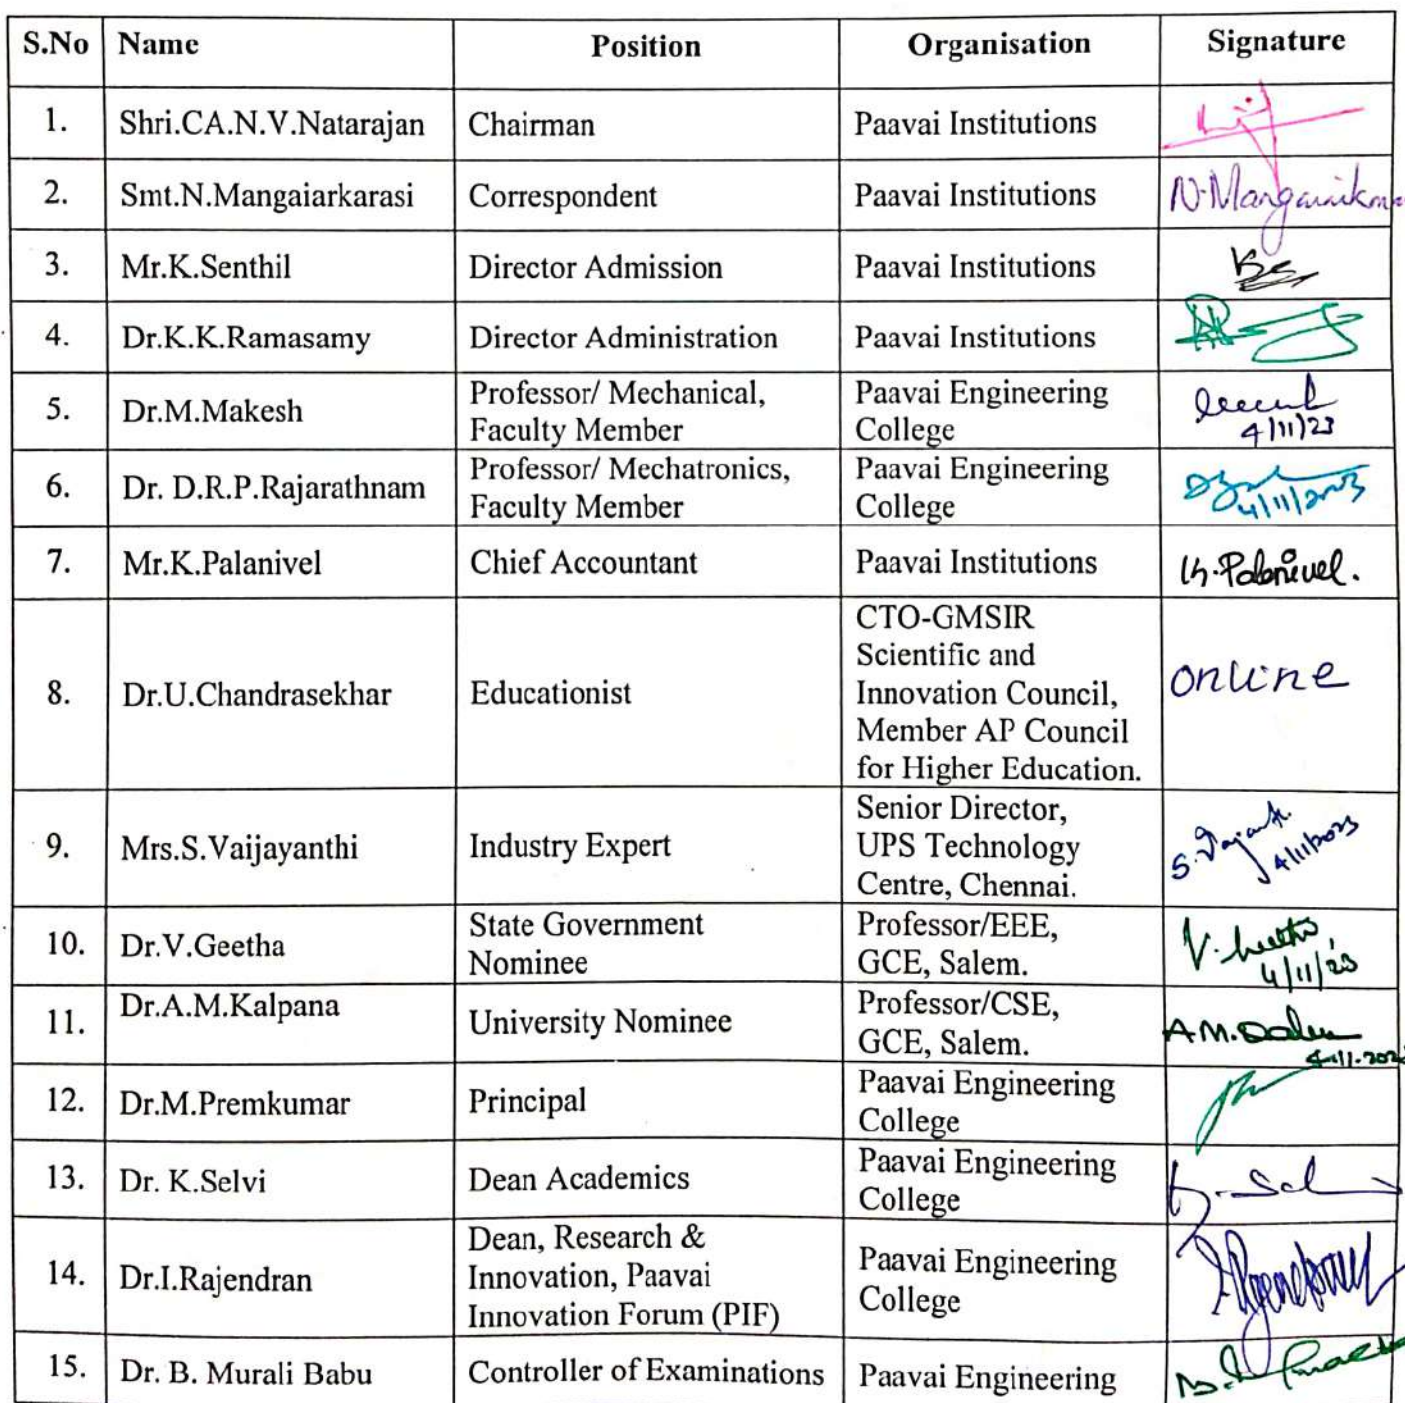 S.No Name Position Organisation Signature
1. Shri.CA.N.V.Natarajan Chairman Paavai Institutions
2. Smt.N.Mangaiarkarasi Correspondent Paavai Institutions
3. Mr.K.Senthil Director Admission Paavai Institutions
4. Dr.K.K.Ramasamy Director Administration Paavai Institutions
5. Dr.M.Makesh Professor/ Mechanical,
Faculty Member Paavai Engineering
College
4/11/23
6. Dr. D.R.P.Rajarathnam Professor/ Mechatronics,
Faculty Member Paavai Engineering
College
4/11/2023
7. Mr.K.Palanivel Chief Accountant Paavai Institutions K.Palanivel.
8. Dr.U.Chandrasekhar Educationist CTO-GMSIR
Scientific and
Innovation Council,
Member AP Council
for Higher Education.
online
9. Mrs.S.Vaijayanthi Industry Expert Senior Director,
UPS Technology
Centre, Chennai.
4/11/2023
10. Dr.V.Geetha State Government
Nominee Professor/EEE,
GCE, Salem.
4/11/23
11. Dr.A.M.Kalpana University Nominee Professor/CSE,
GCE, Salem.
12. Dr.M.Premkumar Principal Paavai Engineering
College
13. Dr. K.Selvi Dean Academics Paavai Engineering
College
14. Dr.I.Rajendran Dean, Research &
Innovation, Paavai
Innovation Forum (PIF) Paavai Engineering
College
15. Dr. B. Murali Babu Controller of Examinations Paavai Engineering